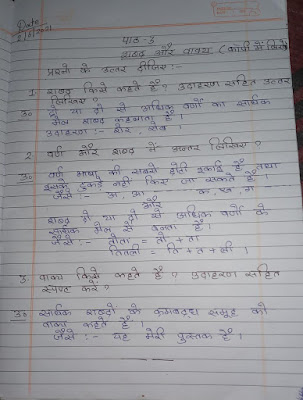 Date
पाठ-3
शब्द और वाक्य (कापी में लिखें)
प्रश्नों के उत्तर दीजिए:-
1. शब्द किसे कहते हैं? उदाहरण सहित उत्तर
लिखिए?
उ० दो या दो से अधिक वर्णों का सार्थक
मेल शब्द कहलाता है।
उदाहरण:- शेर, सेब।
2. वर्ण और शब्द में अन्तर लिखिए?
उ० वर्ण भाषा की सबसे छोटी इकाई है तथा
इसके टुकड़े नहीं किए जा सकते हैं।
जैसे:- अ, आ क, ख, ग
और
शब्द दो या दो से अधिक वर्णों के
सार्थक मेल से बनता है।
जैसे:- तोता = तो + ता
तितली = ति + त + ली।
3. वाक्य किसे कहते हैं? उदाहरण सहित
स्पष्ट करें?
उ० सार्थक शब्दों के क्रमबद्ध समूह को
वाक्य कहते हैं।
जैसे:- यह मेरी पुस्तक है।